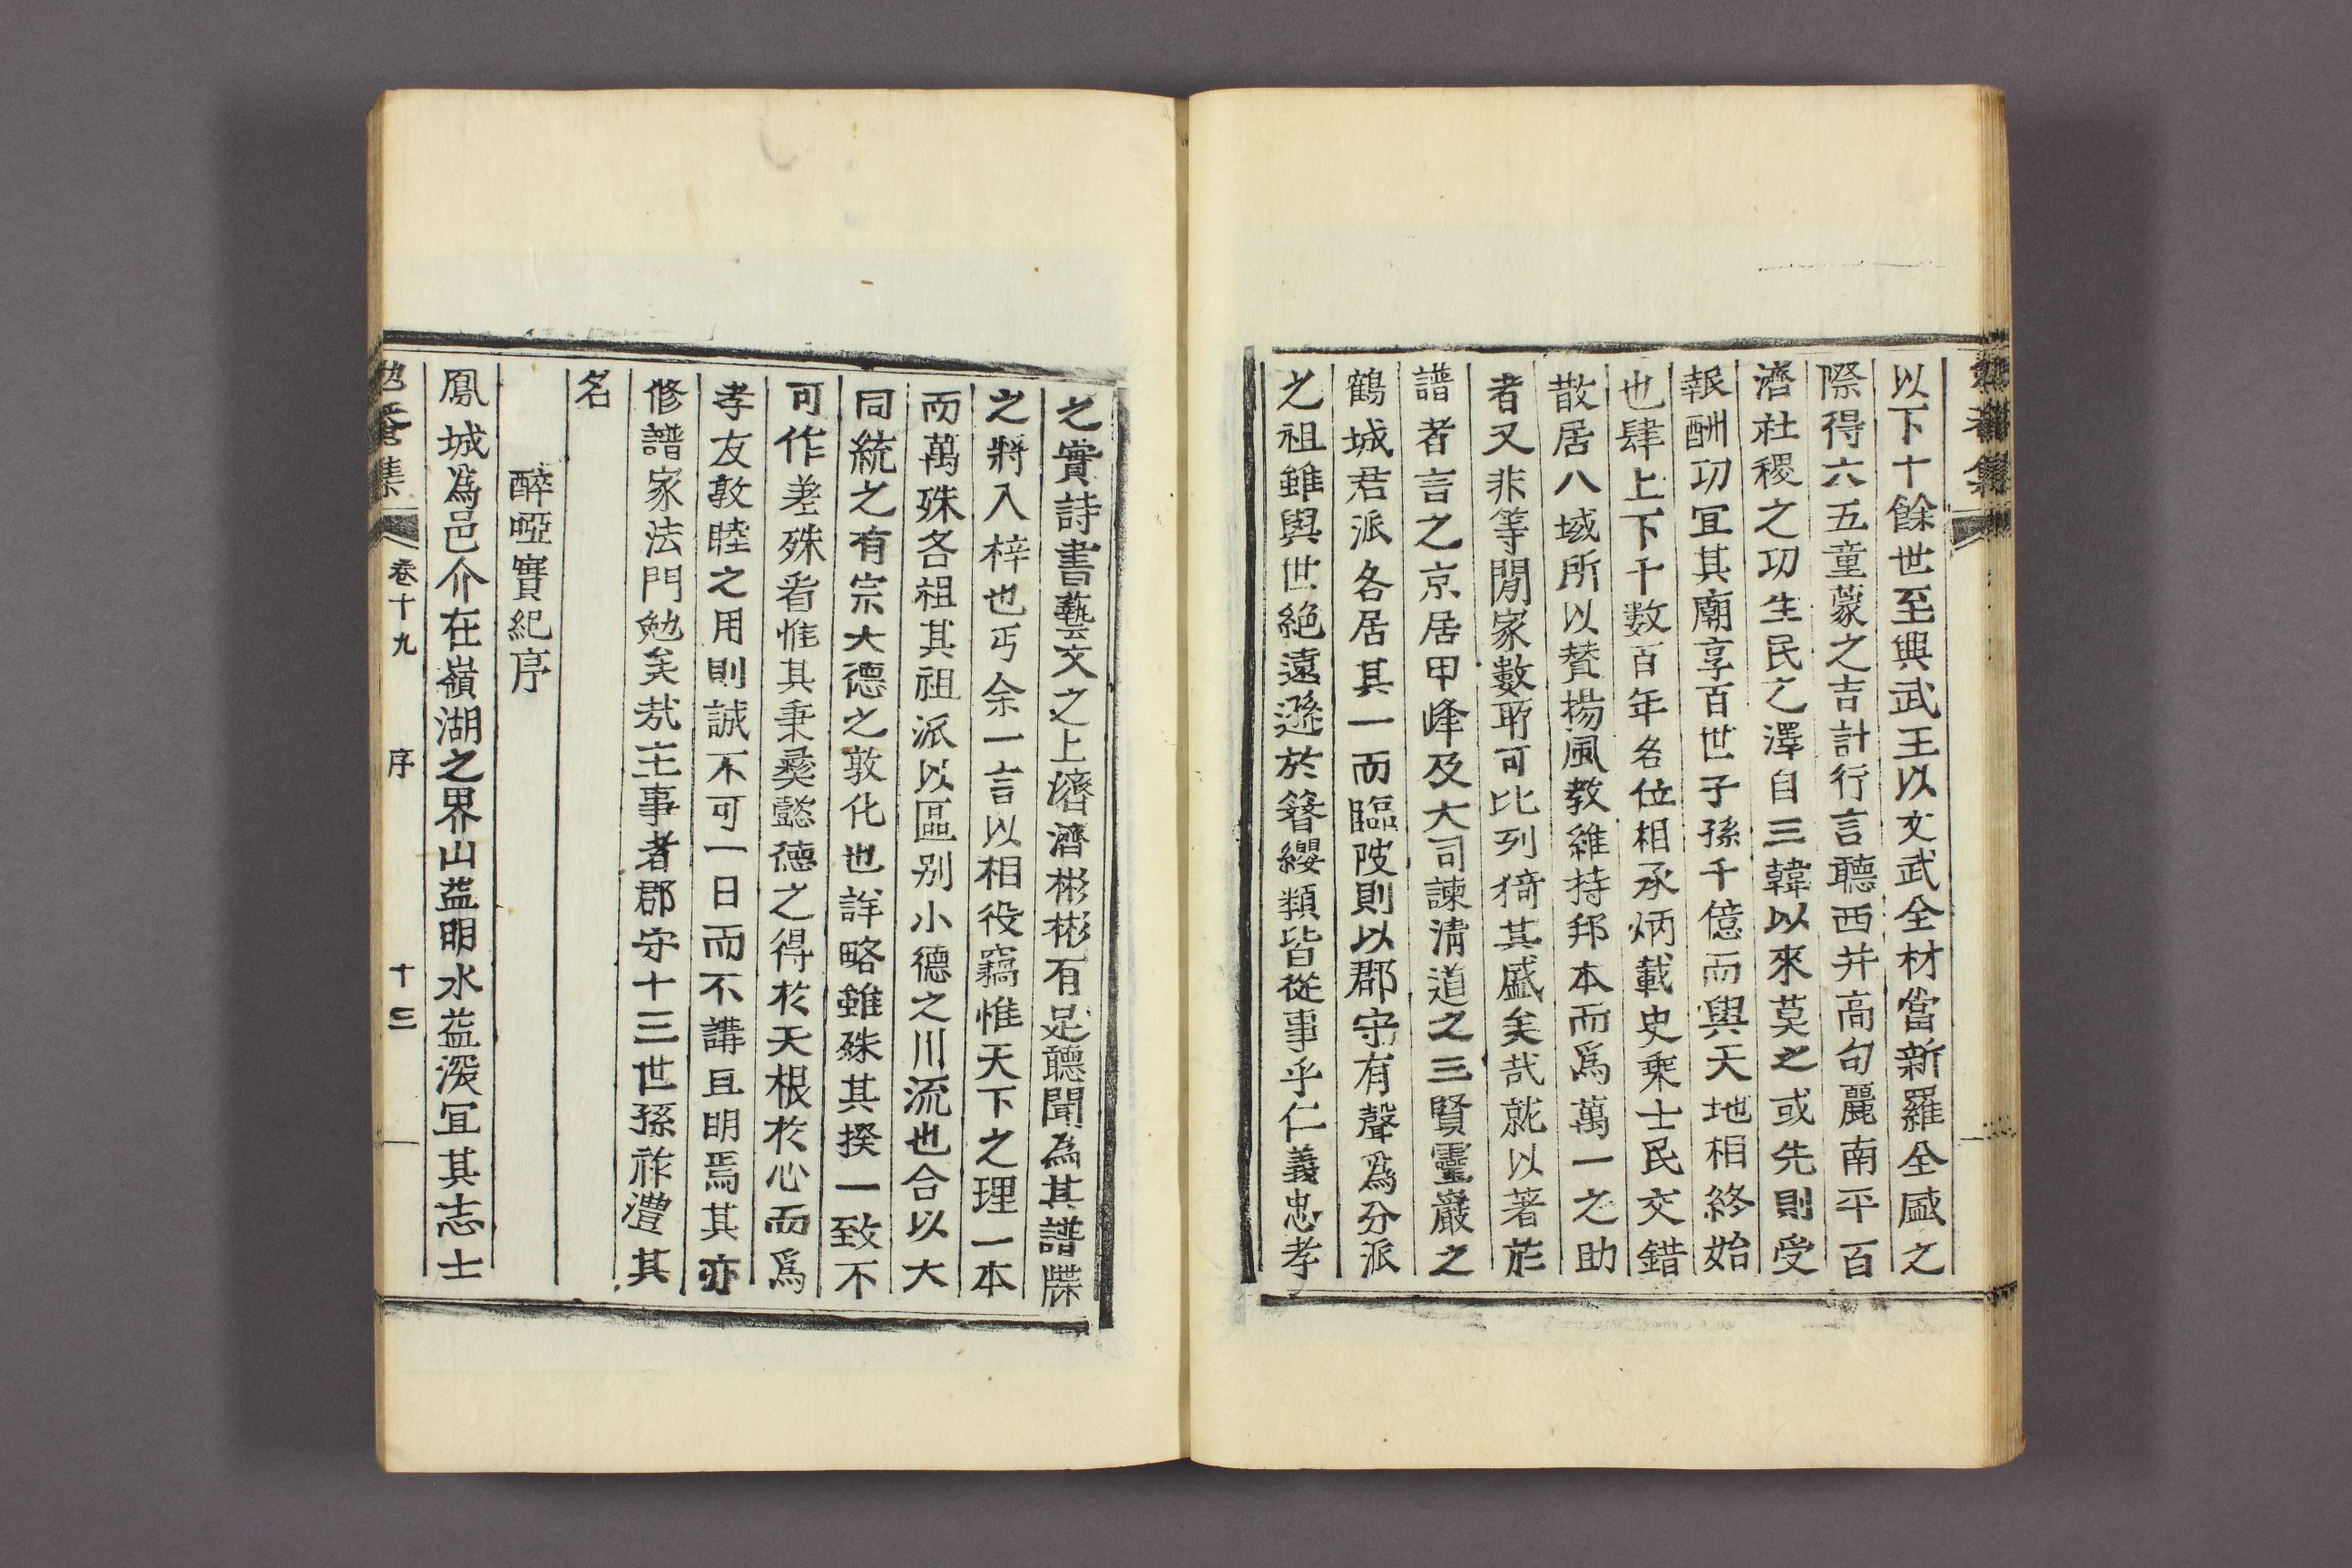 以下十餘世至興武王以文武全材當新羅全盛之
際得六五童蒙之吉計行言聽西并高句麗南平百
濟社稷之功生民之澤自三韓以來莫之或先則受
報酬功宜其廟享百世子孫千億而與天地相終始
也肆上下千數百年名位相承炳載史乘士民交錯
散居八域所以贊揚風教維持邦本而爲萬一之助
者又非等閒家數所可比列猗其盛矣哉就以著於
譜者言之京居甲峰及大司諫淸道之三賢靈巖之
鶴城君派各居其一而臨陂則以郡守有聲爲分派
之祖雖與世絶遠遜於簪纓類皆從事乎仁義忠孝
之實詩書藝文之上濟濟彬彬有足聽聞為其譜牒
之將入梓也丐余一言以相役竊惟天下之理一本
而萬殊各祖其祖派以區别小德之川流也合以大
同統之有宗大德之敦化也詳略雖殊其揆一致不
可作差殊看惟其秉彜懿德之得於天根於心而爲
孝友敦睦之用則誠不可一日而不講且明焉其亦
修譜家法門勉矣哉主事者郡守十三世孫祚澧其
名
醉啞實紀序
鳳城爲邑介在嶺湖之界山益明水益深宜其志士
勉菴集
卷十九
序
十三